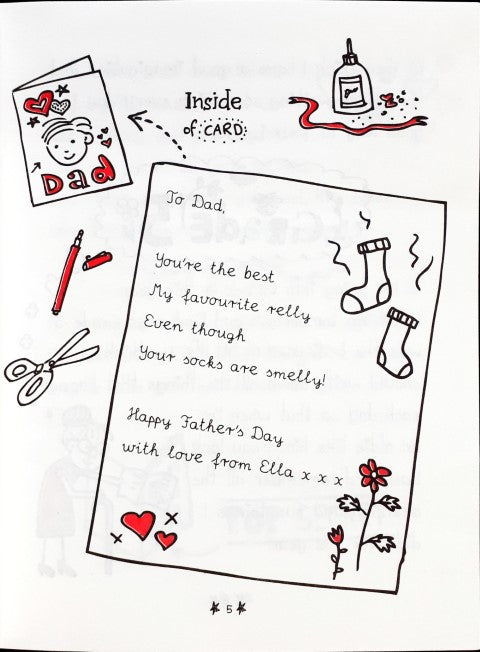 Inside
of CARD
Dad
To Dad,
You're the best
My favourite relly
Even though
Your socks are smelly!
Happy Father's Day
with love from Ella x x x
5